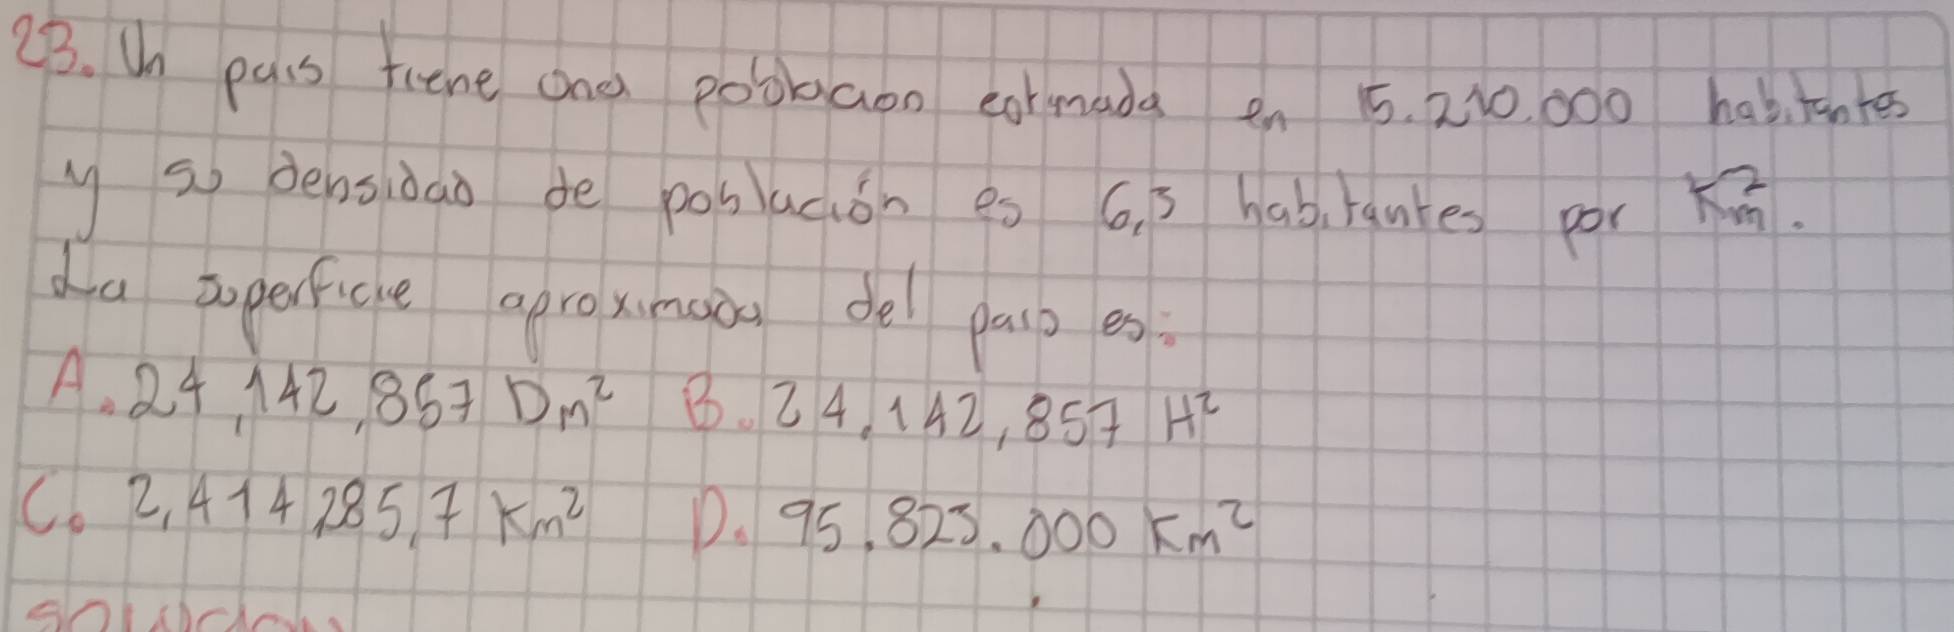 23. Un pais tiene una poblacion estimada en 15.210.000 habitantes
y su densidad de población es 6,3 habitantes por Km².
La superficie aproximada del pais es:
A. 24,142,857 Dm² B. 24,142,857 H²
C. 2,414285,7 Km² D. 95.823.000 Km²
solucion